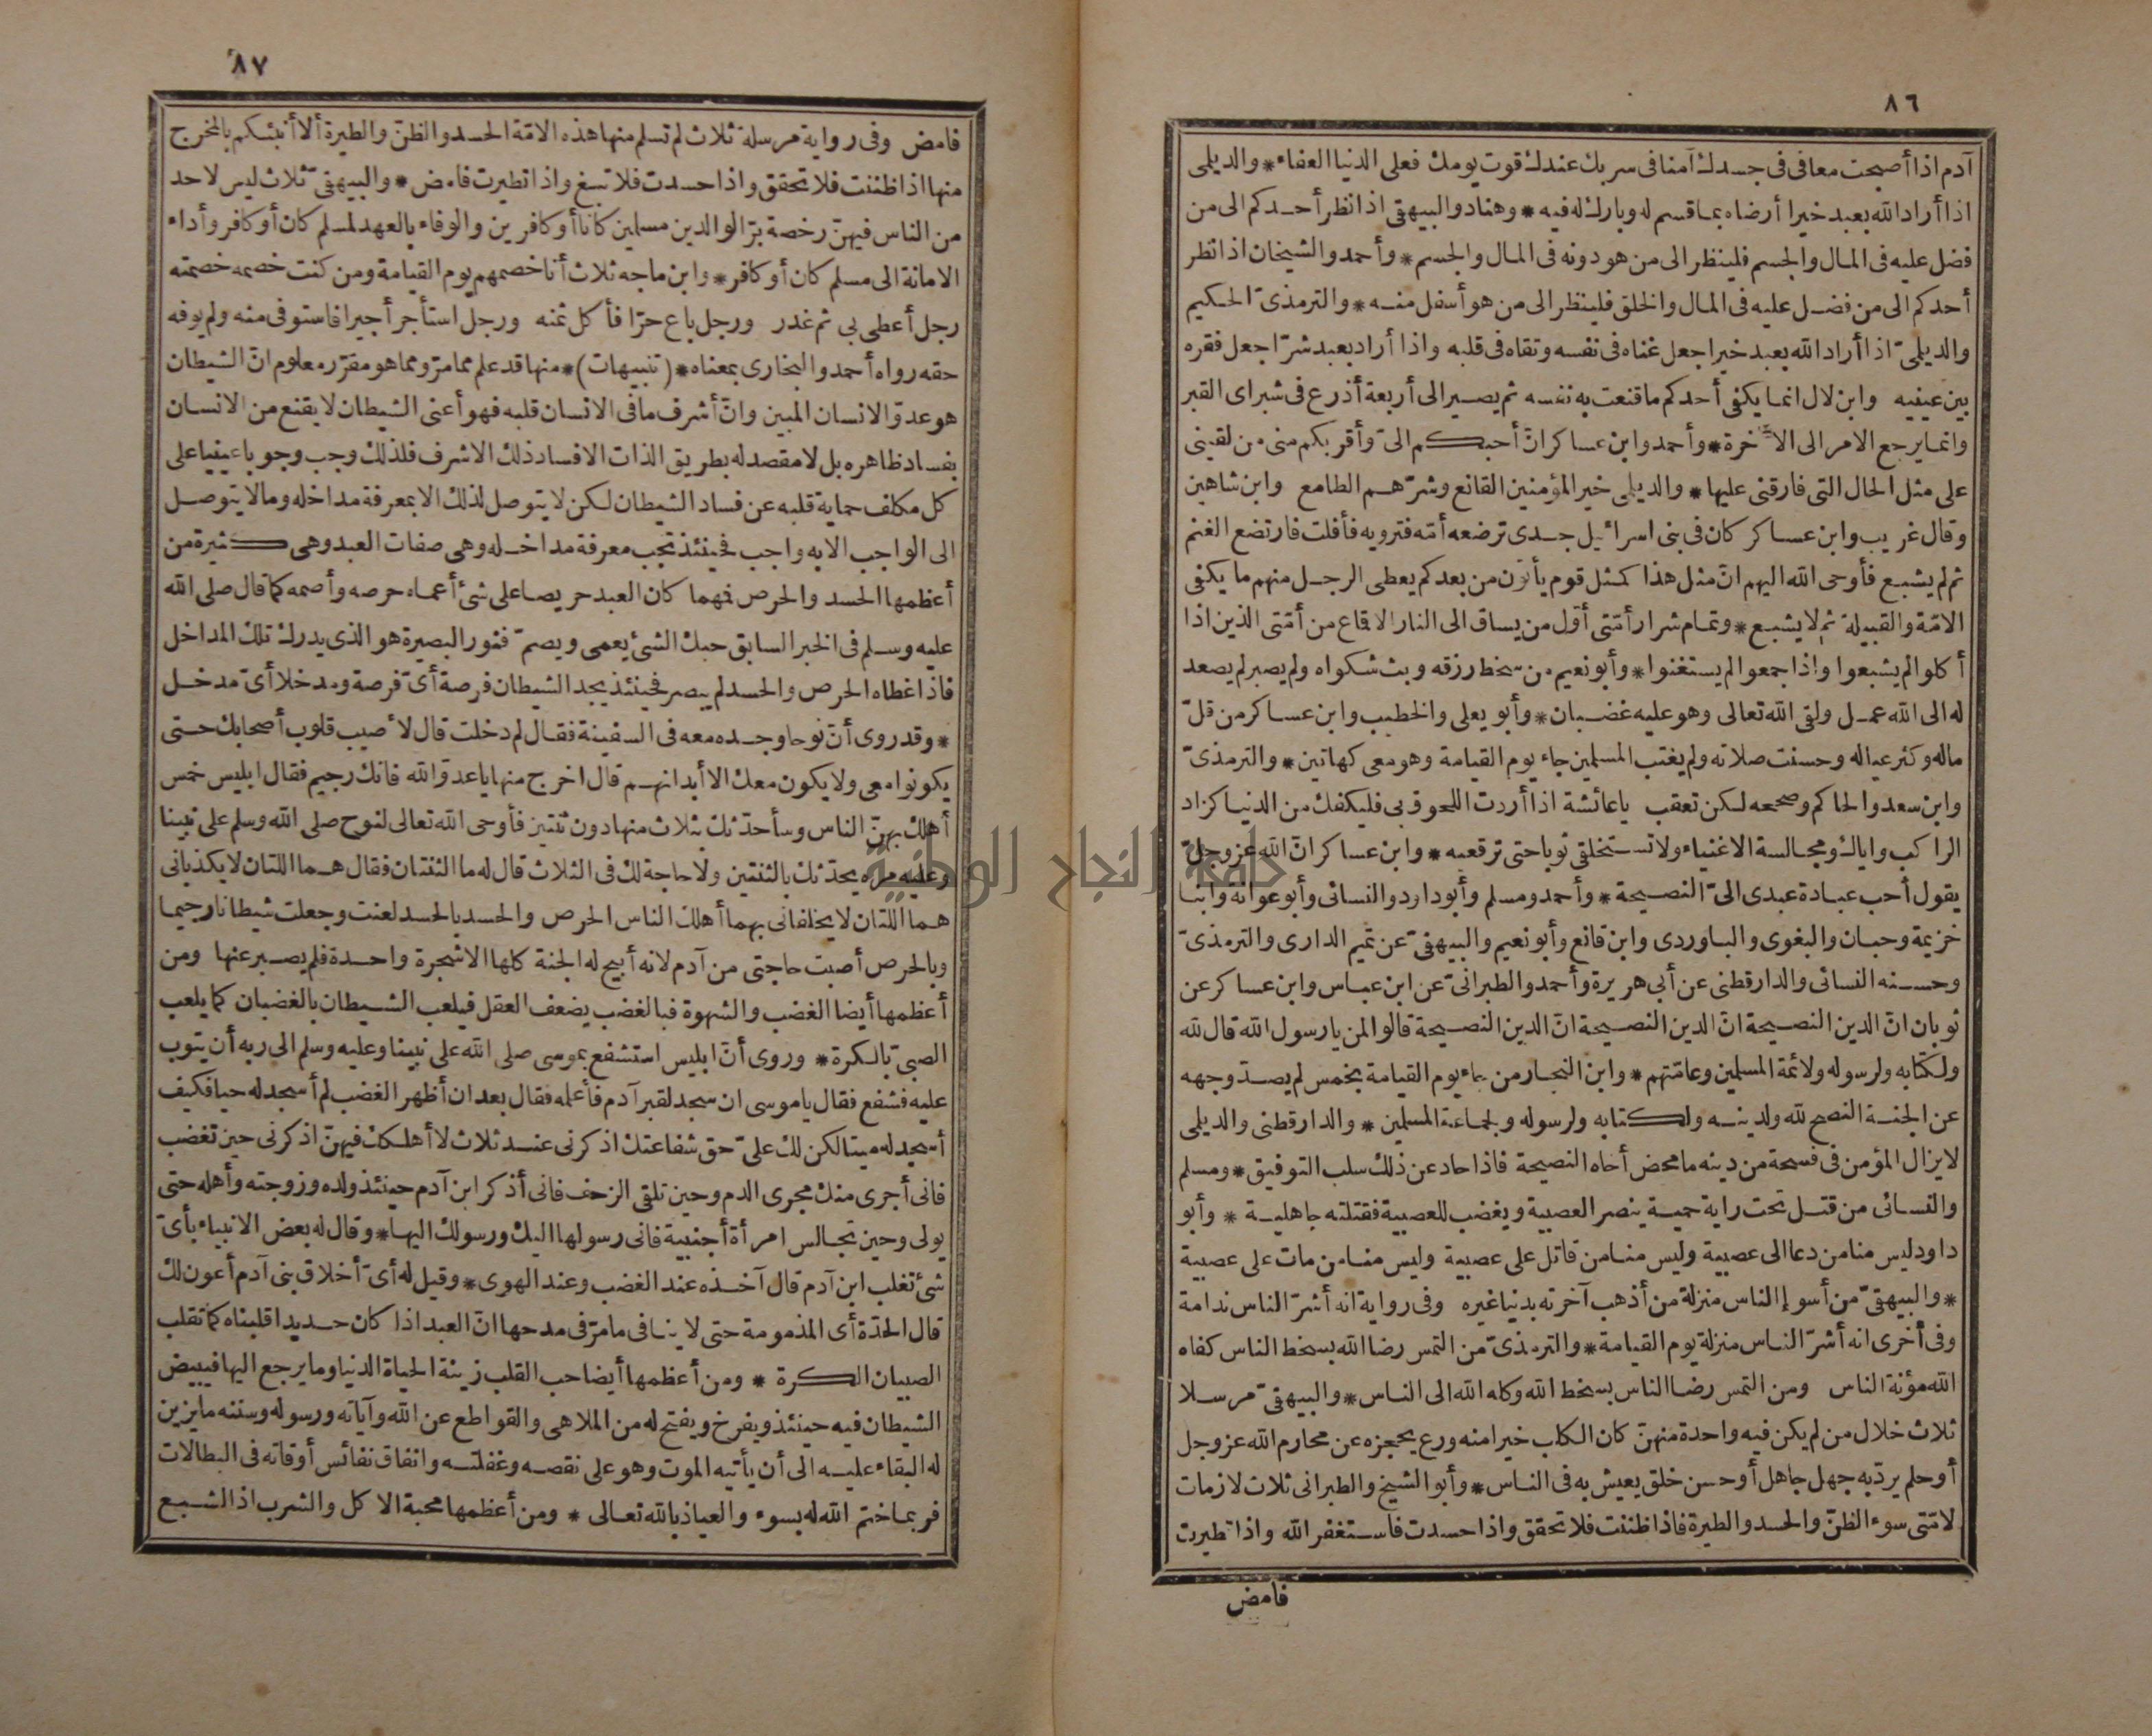 ٨٦
آدم اذا أصبحت معافى فى جسدك آمنا فى سربك عندك قوت يومك فعلى الدنيا العفاء * والديلمى
اذا أراد الله بعبد خيرا أرضاه بما قسم له وبارك له فيه * وهناد والبيهقى اذا نظر أحدكم الى من
فضل عليه فى المال والجسم فلينظر الى من هو دونه فى المال والجسم * وأحمد والشيخان اذا نظر
أحدكم الى من فضل عليه فى المال والخلق فلينظر الى من هو أسفل منه * والترمذىّ الحكيم
والديلمىّ اذا أراد الله بعبد خيرا جعل غناه فى نفسه وتقاه فى قلبه واذا أراد بعبد شرّا جعل فقره
بين عينيه وابن لال انما يكفى أحدكم ما قنعت به نفسه ثم يصير الى أربعة أذرع فى شبر اى القبر
وانما يرجع الامر الى الآخرة * وأحمد وابن عساكر انّ أحبكم الىّ وأقربكم منى من لقينى
على مثل الحال التى فارقنى عليها * والديلمى خير المؤمنين القانع وشرّهم الطامع وابن شاهين
وقال غريب وابن عساكر كان فى بنى اسرائيل جدى ترضعه أمّه فترويه فأفلت فارتضع الغنم
ثم لم يشبع فأوحى الله اليهم انّ مثل هذا كمثل قوم يأتون من بعدكم يعطى الرجل منهم ما يكفى
الامّة والقبيلة ثم لا يشبع * وتمام شرار أمّتى أوّل من يساق الى النار الاقماع من أمّتى الذين اذا
أكلوا لم يشبعوا واذا جمعوا لم يستغنوا * وأبو نعيم من سخط رزقه وبث شكواه ولم يصبر لم يصعد
له الى الله عمل ولقى الله تعالى وهو عليه غضبان * وأبو يعلى والخطيب وابن عساكر من قلّ
ماله وكثر عياله وحسنت صلاته ولم يغتب المسلمين جاء يوم القيامة وهو معى كهاتين * والترمذىّ
وابن سعد والحاكم وصححه لكن تعقب يا عائشة اذا أردت اللحوق بى فليكفك من الدنيا كزاد
الراكب واياك ومجالسة الاغنياء ولا تستخلقى ثوبا حتى ترقعيه * وابن عساكر انّ الله عز وجلّ
يقول أحب عبادة عبدى الىّ النصيحة * وأحمد ومسلم وأبو داود والنسائى وأبو عوانة وابنا
خزيمة وحبان والبغوى والباوردى وابن قانع وأبو نعيم والبيهقىّ عن تميم الدارى والترمذىّ
وحسنه النسائى والدارقطنى عن أبى هريرة وأحمد والطبرانىّ عن ابن عباس وابن عساكر عن
ثوبان انّ الدين النصيحة انّ الدين النصيحة انّ الدين النصيحة قالوا لمن يا رسول الله قال لله
ولكتابه ولرسوله ولائمة المسلمين وعامّتهم * وابن النجار من جاء يوم القيامة بخمس لم يصدّ وجهه
عن الجنة النصح لله ولدينه ولكتابه ولرسوله ولجماعة المسلمين * والدارقطنى والديلمى
لا يزال المؤمن فى فسحة من دينه ما محض أخاه النصيحة فاذا حاد عن ذلك سلب التوفيق * ومسلم
والنسائى من قتل تحت راية حمية ينصر العصبية ويغضب للعصبية فقتلته جاهلية * وأبو
داود ليس منا من دعا الى عصبية وليس منا من قاتل على عصبية وليس منا من مات على عصبية
* والبيهقىّ من أسوإ الناس منزلة من أذهب آخرته بدنيا غيره وفى رواية انه أشرّ الناس ندامة
وفى أخرى انه أشرّ الناس منزلة يوم القيامة * والترمذىّ من التمس رضا الله بسخط الناس كفاه
الله مؤنة الناس ومن التمس رضا الناس بسخط الله وكله الله الى الناس * والبيهقىّ مرسلا
ثلاث خلال من لم يكن فيه واحدة منهنّ كان الكلب خيرا منه ورع يحجزه عن محارم الله عز وجل
أو حلم يردّ به جهل جاهل أو حسن خلق يعيش به فى الناس * وأبو الشيخ والطبرانى ثلاث لازمات
لامّتى سوء الظنّ والحسد والطيرة فاذا ظننت فلا تحقق واذا حسدت فاستغفر الله واذا تطيرت
فامض
٨٧
فامض وفى رواية مرسلة ثلاث لم تسلم منها هذه الامّة الحسد والظنّ والطيرة ألا أنبئكم بالمخرج
منها اذا ظننت فلا تحقق واذا حسدت فلا تبغ واذا تطيرت فامض * والبيهقىّ ثلاث ليس لاحد
من الناس فيهنّ رخصة برّ الوالدين مسلمين كانا أو كافرين والوفاء بالعهد لمسلم كان أو كافر وأداء
الامانة الى مسلم كان أو كافر * وابن ماجه ثلاث أنا خصمهم يوم القيامة ومن كنت خصمه خصمته
رجل أعطى بى ثم غدر ورجل باع حرّا فأكل ثمنه ورجل استأجر أجيرا فاستوفى منه ولم يوفه
حقه رواه أحمد والبخارى بمعناه * (تنبيهات) * منها قد علم مما مرّ ومما هو مقرّر معلوم انّ الشيطان
هو عدوّ الانسان المبين وانّ أشرف ما فى الانسان قلبه فهو أعنى الشيطان لا يقنع من الانسان
بفساد ظاهره بل لا مقصد له بطريق الذات الا فساد ذلك الاشرف فلذلك وجب وجوبا عينيا على
كل مكلف حماية قلبه عن فساد الشيطان لكن لا يتوصل لذلك الا بمعرفة مداخله وما لا يتوصل
الى الواجب الا به واجب فحينئذ تجب معرفة مداخله وهى صفات العبد وهى كثيرة من
أعظمها الحسد والحرص فمهما كان العبد حريصا على شئ أعماه حرصه وأصمه كما قال صلى الله
عليه وسلم فى الخبر السابق حبك الشئ يعمى ويصمّ فنور البصيرة هو الذى يدرك تلك المداخل
فاذا غطاه الحرص والحسد لم يبصر فحينئذ يجد الشيطان فرصة أىّ فرصة ومدخلا أىّ مدخل
* وقد روى أنّ نوحا وجده معه فى السفينة فقال لم دخلت قال لأصيب قلوب أصحابك حتى
يكونوا معى ولا يكون معك الا أبدانهم قال اخرج منها يا عدوّ الله فانك رجيم فقال ابليس خمس
أهلك بهنّ الناس وسأحدّثك بثلاث منها دون ثنتين فأوحى الله تعالى لنوح صلى الله وسلم على نبينا
وعليه مره يحدّثك بالثنتين ولا حاجة لك فى الثلاث قال له ما الثنتان فقال هما اللتان لا يكذبانى
هما اللتان لا يخلفانى بهما أهلك الناس الحرص والحسد بالحسد لعنت وجعلت شيطانا رجيما
وبالحرص أصبت حاجتى من آدم لانه أبيح له الجنة كلها الا شجرة واحدة فلم يصبر عنها ومن
أعظمها أيضا الغضب والشهوة فبالغضب يضعف العقل فيلعب الشيطان بالغضبان كما يلعب
الصبىّ بالكرة * وروى أنّ ابليس استشفع بموسى صلى الله على نبينا وعليه وسلم الى ربه أن يتوب
عليه فشفع فقال يا موسى ان سجد لقبر آدم فأعلمه فقال بعد ان أظهر الغضب لم أسجد له حيا فكيف
أسجد له ميتا لكن لك علىّ حق شفاعتك اذكرنى عند ثلاث لا أهلكك فيهنّ اذكرنى حين تغضب
فانى أجرى منك مجرى الدم وحين تلقى الزحف فانى أذكر ابن آدم حينئذ ولده وزوجته وأهله حتى
يولى وحين تجالس امرأة أجنبية فانى رسولها اليك ورسولك اليها * وقال له بعض الانبياء بأىّ
شئ تغلب ابن آدم قال آخذه عند الغضب وعند الهوى * وقيل له أىّ أخلاق بنى آدم أعون لك
قال الحدّة أى المذمومة حتى لا ينافى ما مرّ فى مدحها انّ العبد اذا كان حديدا قلبناه كما تقلب
الصبيان الكرة * ومن أعظمها أيضا حب القلب زينة الحياة الدنيا وما يرجع اليها فيبيض
الشيطان فيه حينئذ ويفرخ ويفتح له من الملاهى والقواطع عن الله وآياته ورسوله وسننه ما يزين
له البقاء عليه الى أن يأتيه الموت وهو على نقصه وغفلته وانفاق نفائس أوقاته فى البطالات
فربما ختم الله له بسوء والعياذ بالله تعالى * ومن أعظمها محبة الاكل والشرب اذ الشبع
جامعة النجاح الوطنية